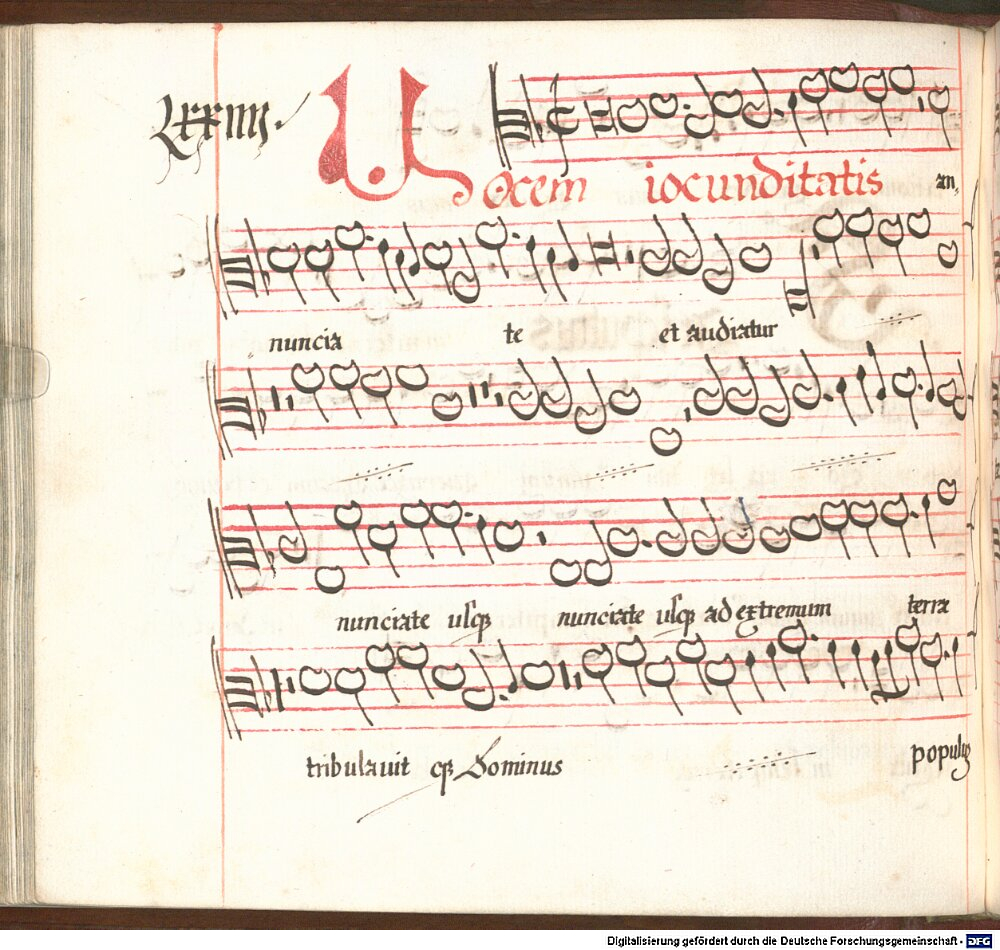 Lxxiiii.
Vocem iocunditatis an,
nuncia te et audiatur
nunciate usq nunciate usq ad extremum terræ
tribulauit q Dominus populu
Digitalisierung gefördert durch die Deutsche Forschungsgemeinschaft - DFG